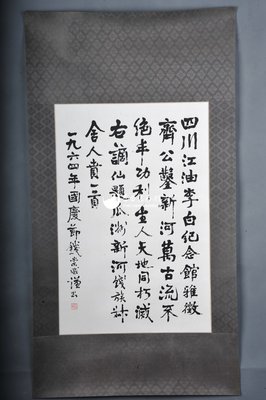 四川江油李白紀念館雅徵
齊公鑿新河萬古流不
絕丰功利生人天地同朽滅
右謫仙題瓜洲新河餞族叔
舍人賁一首
一九六四年國慶節錢崇威謹书